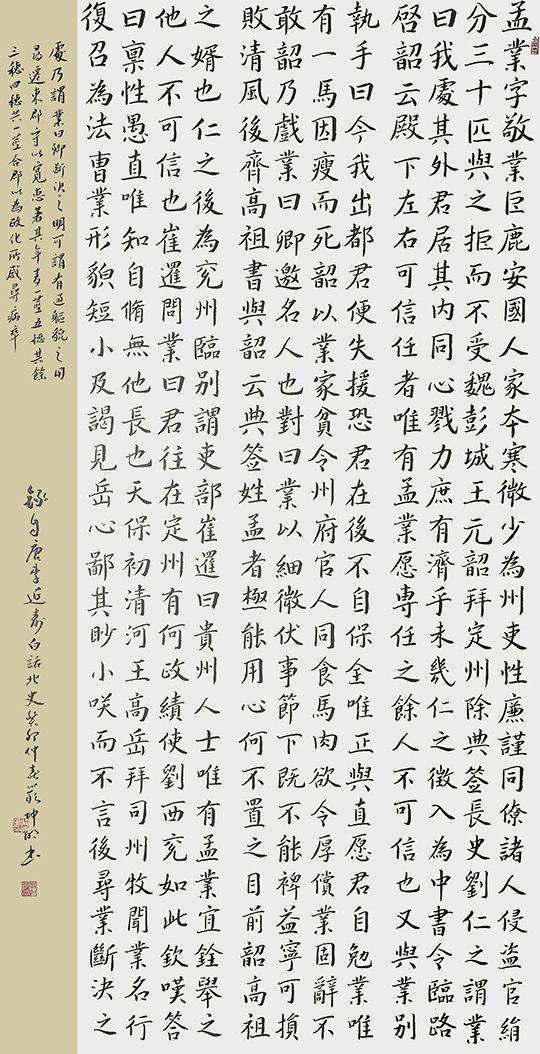 孟業字敬業巨鹿安國人家本寒微少為州吏性廉謹同僚諸人侵盜官絹
分三十匹與之拒而不受魏彭城王元韶拜定州除典簽長史劉仁之謂業
曰我處其外君居其內同心戮力庶有濟乎未幾仁之徵入為中書令臨路
啓韶云殿下左右可信任者唯有孟業愿專任之餘人不可信也又與業別
執手曰今我出都君便失援恐君在後不自保全唯正與直愿君自勉業唯
有一馬因瘦而死韶以業家貧令州府官人同食馬肉欲令厚償業固辭不
敢韶乃戲業曰卿邀名人也對曰業以細微伏事節下既不能裨益寧可損
敗清風後齊高祖書與韶云典簽姓孟者極能用心何不置之目前韶高祖
之婿也仁之後為兗州臨別謂吏部崔暹曰貴州人士唯有孟業宜銓舉之
他人不可信也崔暹問業曰君往在定州有何政績使劉西兗如此欽嘆答
曰稟性愚直唯知自脩無他長也天保初清河王高岳拜司州牧聞業名行
復召為法曹業形貌短小及謁見岳心鄙其眇小咲而不言後尋業斷決之
處乃謂業曰卿斷決之明可謂有過軀貌之用
尋遷東郡守以寬惠著其年麦一莖五穗其餘
三穗四穗共一莖合郡以為政化所感尋病卒
錄自唐李延壽白話北史癸卯仲春嚴坤明書